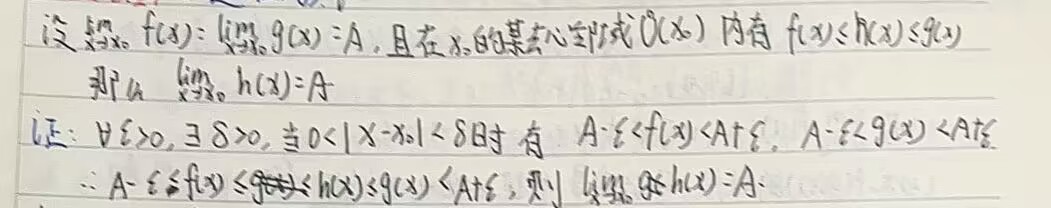 设 lim x→x₀ f(x) = lim x→x₀ g(x) = A, 且在 x₀ 的某去心邻域 Ů(x₀) 内有 f(x) ≤ h(x) ≤ g(x)
那么 lim x→x₀ h(x) = A
证: ∀ε>0, ∃δ>0, 当 0<|x-x₀|<δ 时 有 A-ε<f(x)<A+ε, A-ε<g(x)<A+ε
∴ A-ε≤f(x)≤h(x)≤g(x)<A+ε, 则 lim x→x₀ h(x)=A.